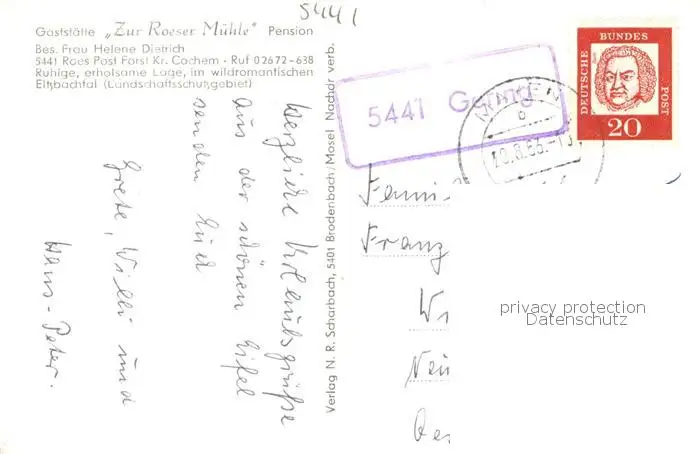 5441
Gaststätte „Zur Roeser Mühle" Pension
Bes. Frau Helene Dietrich
5441 Roes Post Forst Kr. Cochem · Ruf 02672-638
Ruhige, erholsame Lage, im wildromantischen
Eltzbachtal (Landschaftsschutzgebiet)
Herzliche Urlaubsgrüße
aus der schönen Eifel
senden Euch
Grete, Willi und
Hans-Peter.
Verlag N. R. Scharbach, 5401 Brodenbach/Mosel Nachdr verb.
5441
DEUTSCHE BUNDES POST
20
Fami
Franz
privacy protection
Datenschutz